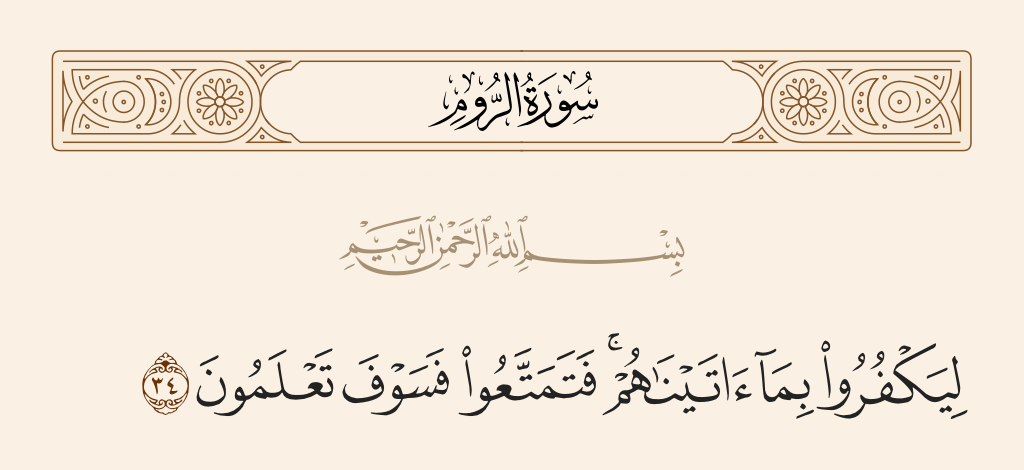 سُورَةُ الرُّومِ
بِسْمِ ٱللَّهِ ٱلرَّحْمَٰنِ ٱلرَّحِيمِ
لِيَكْفُرُوا۟ بِمَآ ءَاتَيْنَـٰهُمْ ۚ فَتَمَتَّعُوا۟ فَسَوْفَ تَعْلَمُونَ ٣٤